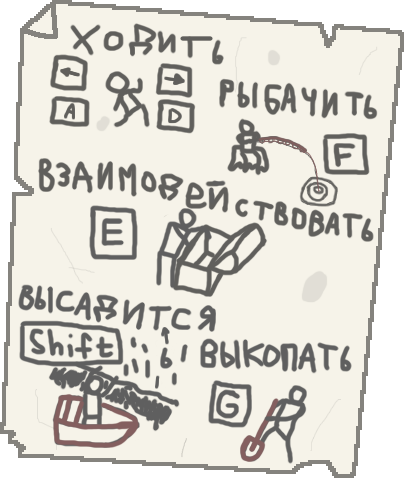 ХОДИТЬ
← →
A D
РЫБАЧИТЬ
F
ВЗАИМОДЕЙСТВОВАТЬ
E
ВЫСАДИТСЯ
ь
Shift
ВЫКОПАТЬ
G